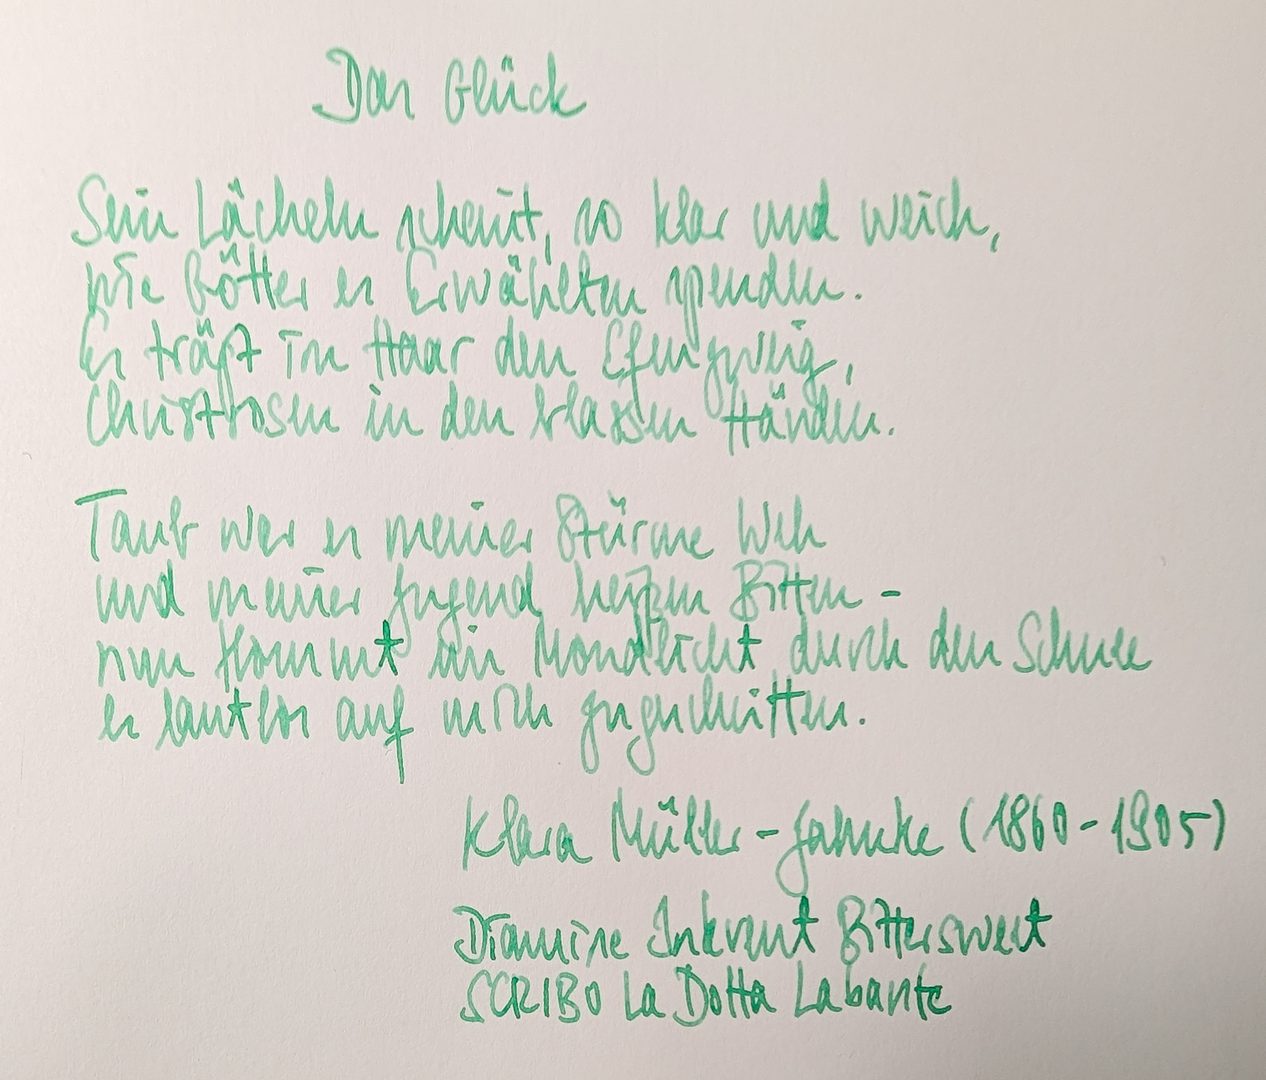 Das Glück
Sein Lächeln scheint, so klar und weich,
wie Götter es Erwählten spenden.
Es trägt im Haar den Efeuzweig,
Christrosen in den blassen Händen.
Taub war es meiner Stürme Weh
und meiner Jugend heißen Bitten -
nun kommt im Mondlicht durch den Schnee
es lautlos auf mich zugeschritten.
Klara Müller-Jahnke (1860-1905)
Diamine Inkvent Bittersweet
SCRIBO La Dotta Labante